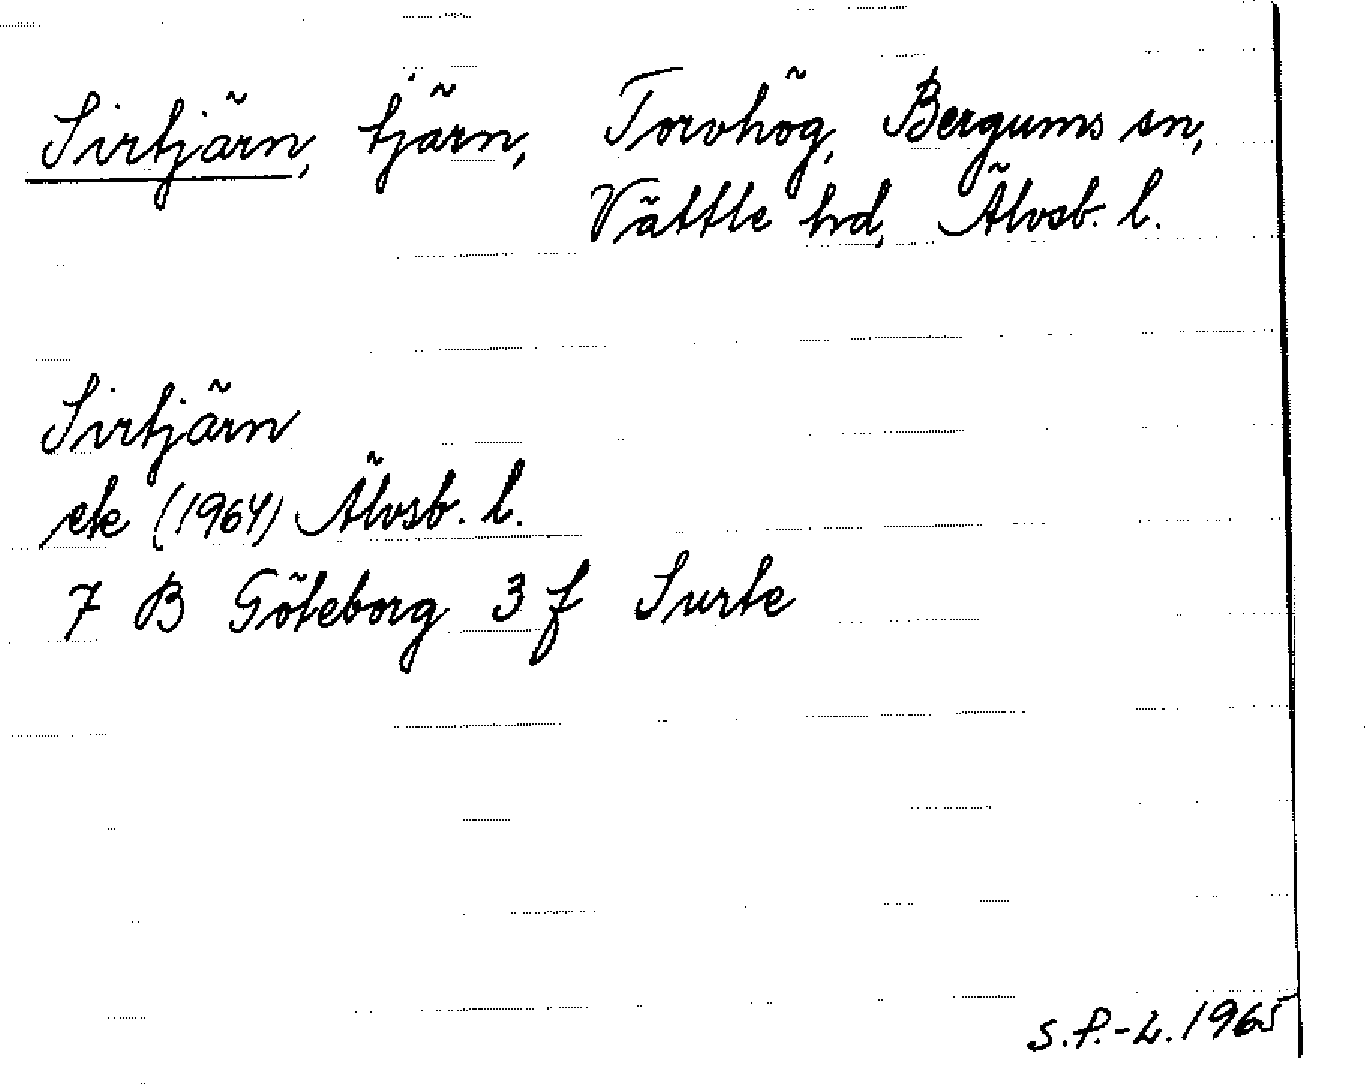 Sirtjärn, tjärn, Torvhög, Bergums sn,
Vättle hd, Älvsb. l.
Sirtjärn
ek (1964) Älvsb. l.
7 B Göteborg 3 f Surte
S.P.-L. 1965